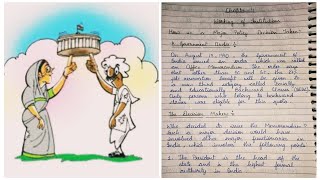 Working of Institutions
How is a Major Policy Decision Taken?
A Government Order :
On August 13, 1990, the Government of
India issued an order which was called
an Office Memorandum. The order says
that other than SC and ST, the
reservation benefit will be given to
a new third category called Socially
and Educationally Backward Classes (SEBC)
Only persons who belong to backward
classes were eligible for this quota
The Decision Makers :
Who decided to issue the Memorandum?
Such a major decision would have
involved other major functionaries in
India, which involves the following points
1. The President is the head of the
state and is the highest formal
authority in India